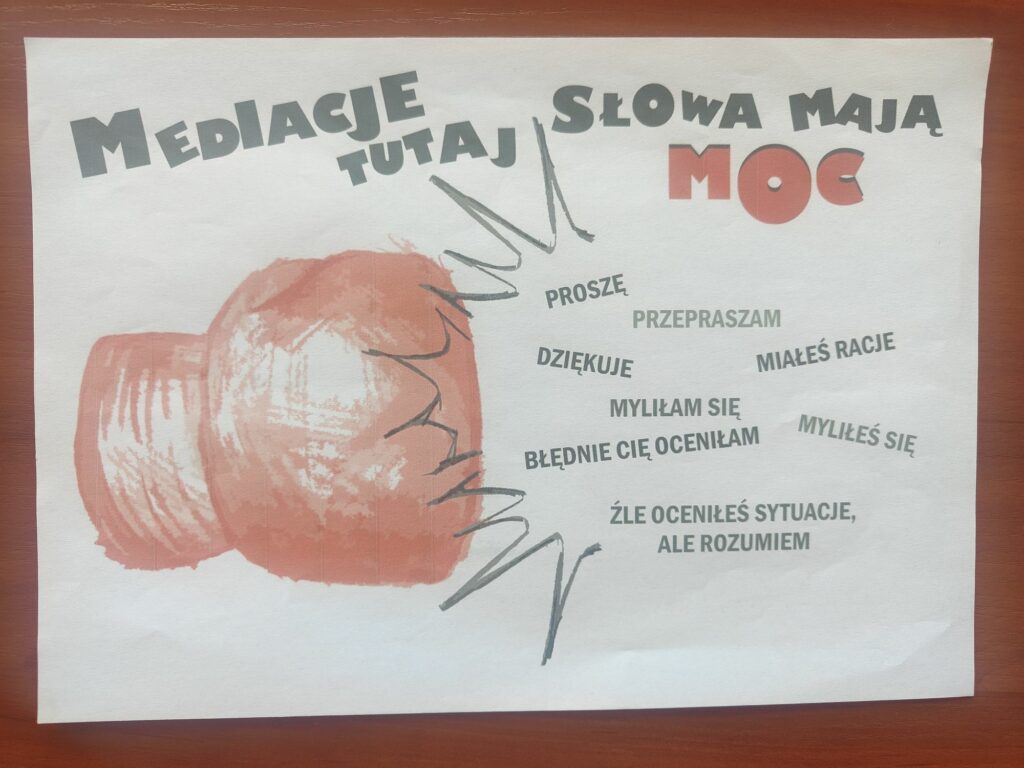 MEDIACJE
TUTAJ
SŁOWA MAJĄ
MOC
PROSZĘ
PRZEPRASZAM
DZIĘKUJE
MIAŁEŚ RACJE
MYLIŁAM SIĘ
MYLIŁEŚ SIĘ
BŁĘDNIE CIĘ OCENIŁAM
ŹLE OCENIŁEŚ SYTUACJE,
ALE ROZUMIEM